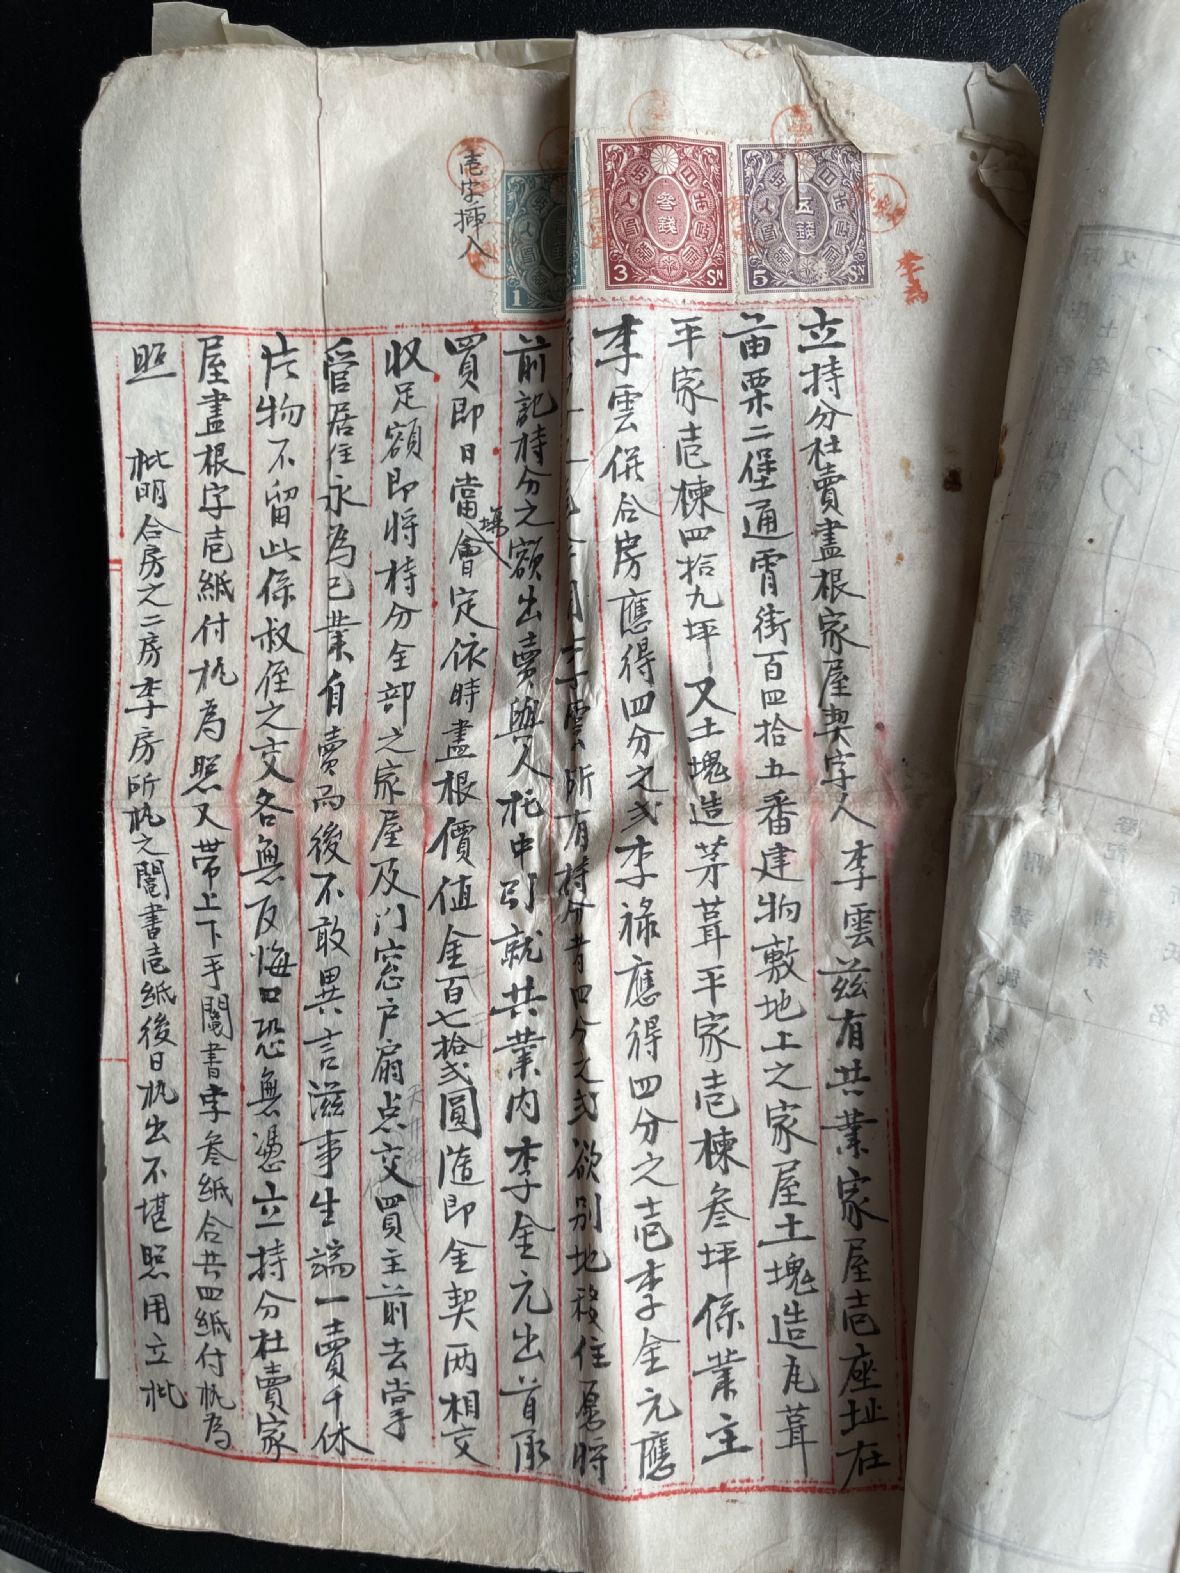 壱字挿入
立持分杜賣盡根家屋契字人李雲茲有共業家屋壱座址在
苗栗二堡通霄街百四拾五番建物敷地上之家屋土塊造瓦葺
平家壱棟四拾九坪又土塊造茅葺平家壱棟叁坪係業主
李雲併合房應得四分之弍李祿應得四分之壱李金元應
雲所有持分者四分之弍欲別地移住愿將
前記持分之額出賣與人托中引就共業內李金元出首承
買即日當場會定依時盡根價值金百七拾弍圓隨即金契兩相交
收足額即將持分全部之家屋及门窓户扇点交買主前去掌
管居住永為己業自賣而後不敢異言滋事生端一賣千休
片物不留此係叔侄之交各無反悔口恐無憑立持分杜賣家
屋盡根字壱紙付执為照又帶上下手鬮書字叁紙合共四紙付执為
照
批明合房之二房李房所执之鬮書壱紙後日执出不堪照用立批
1
3
叁錢
SN
5
五錢
SN